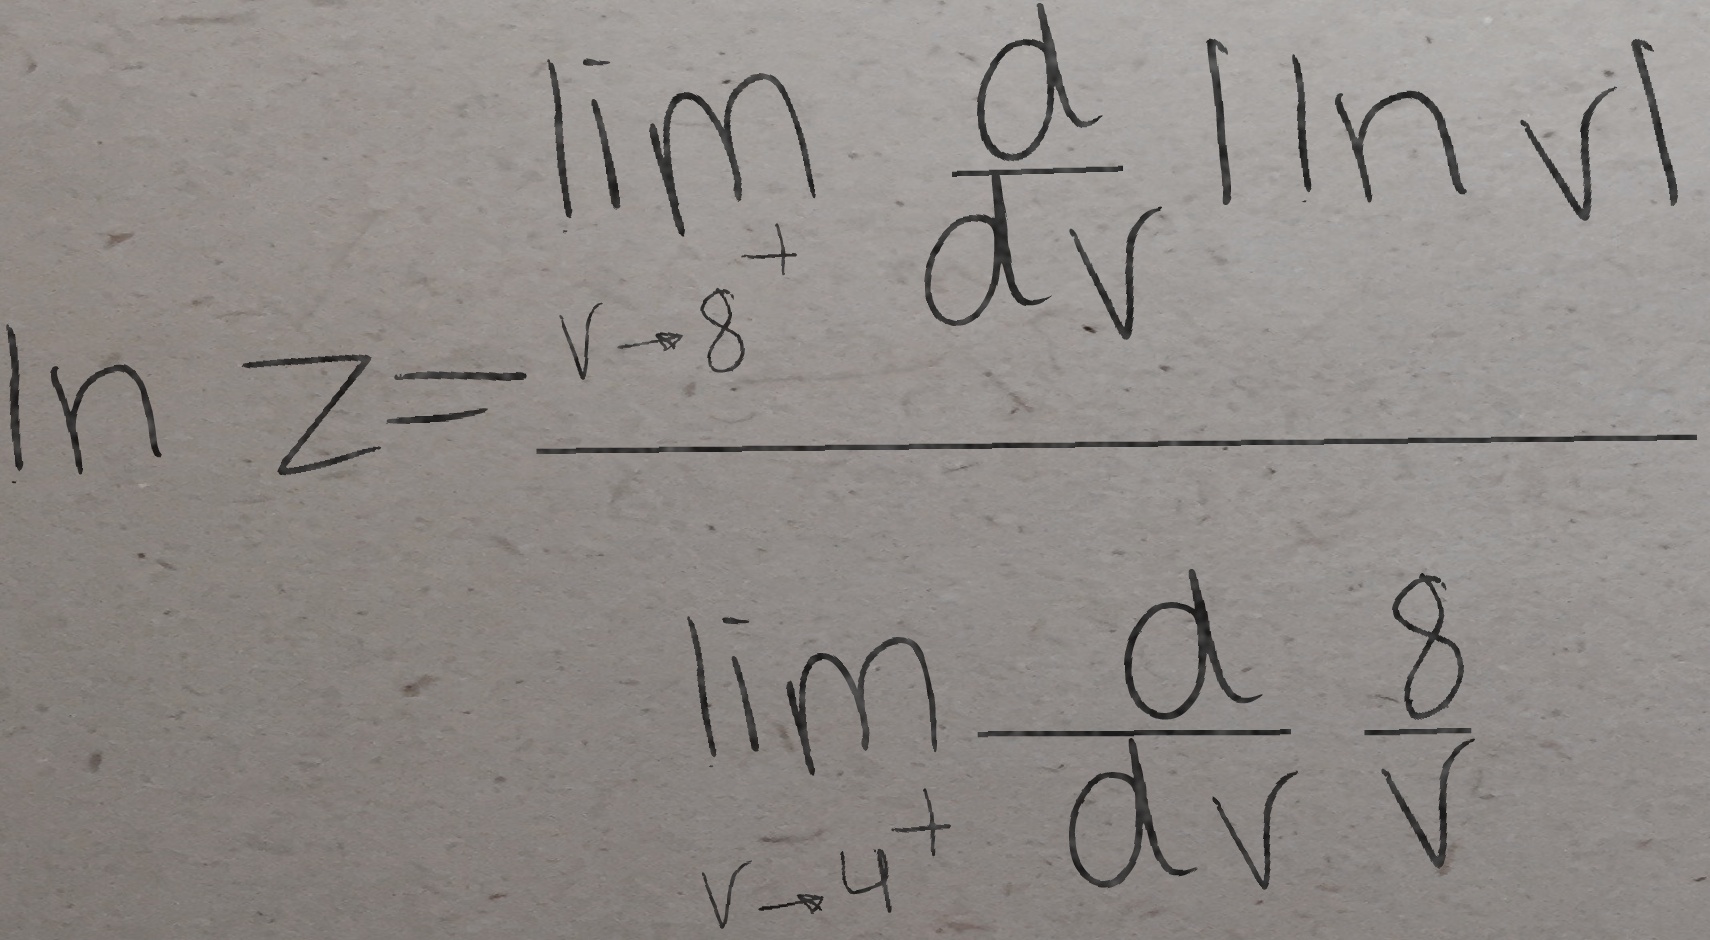 \ln z = \frac{\lim_{v \to 8^+} \frac{d}{dv} |\ln v|}{\lim_{v \to 4^+} \frac{d}{dv} \frac{8}{v}}